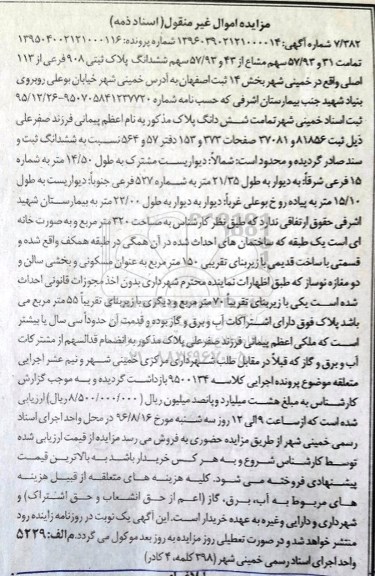 مزایده اموال غیر منقول (اسناد ذمه)
۷/۳۸۲ شماره آگهی: ۱۳۹۶۰۳۹۰۲۱۲۱۰۰۰۰۱۴ شماره پرونده: ۱۳۹۵۰۴۰۰۲۱۲۱۰۰۰۱۱۶
تمامت ۳۱ و ۵۷/۹۳ سهم مشاع از ۴۳ و ۵۷/۹۳ سهم ششدانگ پلاک ثبتی ۹۰۸ فرعی از ۱۱۳
اصلی واقع در خمینی شهر بخش ۱۴ ثبت اصفهان به آدرس خمینی شهر خیابان بوعلی روبروی
بنیاد شهید جنب بیمارستان اشرفی که حسب نامه شماره ۹۵۰۷۰۵۸۴۱۲۳۷۷۲۰-۹۵/۱۲/۲۶
ثبت اسناد خمینی شهر تمامت شش دانگ پلاک مذکور به نام اعظم پیمانی فرزند صفرعلی
ذیل ثبت ۸۱۸۵۶ و ۳۷۰۸۱ صفحات ۳۷۳ و ۱۵۳ دفتر ۵۷ و ۵۶۴ نسبت به ششدانگ ثبت و
سند صادر گردیده و محدود است: شمالاً: دیواریست مشترک به طول ۱۴/۵۰ متر به شماره
۱۵ فرعی شرقاً: به دیوار به طول ۲۱/۳۵ متر به شماره ۵۲۷ فرعی جنوباً: دیواریست به طول
۱۵/۱۰ متر به پیاده رو خ بوعلی غرباً: دیوار به دیوار به طول ۲۲/۰۰ متر به بیمارستان شهید
اشرفی حقوق ارتفاقی ندارد که طبق نظر کارشناس به مساحت ۳۲۰ متر مربع و به صورت خانه
ای است یک طبقه که ساختمان های احداث شده در آن همگی در طبقه همکف واقع شده و
قسمتی با ساخت قدیمی با زیربنای تقریبی ۱۵۰ متر مربع به عنوان مسکونی و بخشی سالن و
دو مغازه نوساز که طبق اظهارات نماینده محترم شهرداری بدون اخذ مجوزات قانونی احداث
شده است یکی با زیربنای تقریباً ۷۰ متر مربع و دیگری با زیربنای تقریباً ۵۵ متر مربع می
باشد پلاک فوق دارای اشتراکات آب و برق و گاز بوده و قدمت آن حدوداً سی سال یا بیشتر
است که ملکی اعظم پیمانی فرزند صفرعلی پلاک مذکور به انضمام قدالسهم از مشترکات
آب و برق و گاز که قبلاً در مقابل طلب شهرداری مرکزی خمینی شهر و نیم عشر اجرایی
متعلقه موضوع پرونده اجرایی کلاسه ۹۵۰۰۱۳۴ بازداشت گردیده و به موجب گزارش
کارشناس به مبلغ هشت میلیارد و پانصد میلیون ریال (۸/۵۰۰/۰۰۰/۰۰۰ ریال) ارزیابی
شده است که از ساعت ۹ الی ۱۲ روز سه شنبه مورخ ۹۶/۸/۱۶ در محل واحد اجرای اسناد
رسمی خمینی شهر از طریق مزایده حضوری به فروش می رسد مزایده از قیمت ارزیابی شده
توسط کارشناس شروع و به هر کس خریدار باشد به بالاترین قیمت
پیشنهادی فروخته می شود. کلیه هزینه های متعلقه از قبیل هزینه
های مربوط به آب، برق، گاز (اعم از حق انشعاب و حق اشتراک) و
شهرداری و دارایی و غیره به عهده خریدار است. این آگهی یک نوبت در روزنامه زاینده رود
منتشر خواهد شد و در صورت تعطیلی روز مزایده به روز بعد موکول می گردد. م الف: ۵۲۲۹
واحد اجرای اسناد رسمی خمینی شهر (۳۹۸ کلمه، ۴ کادر)